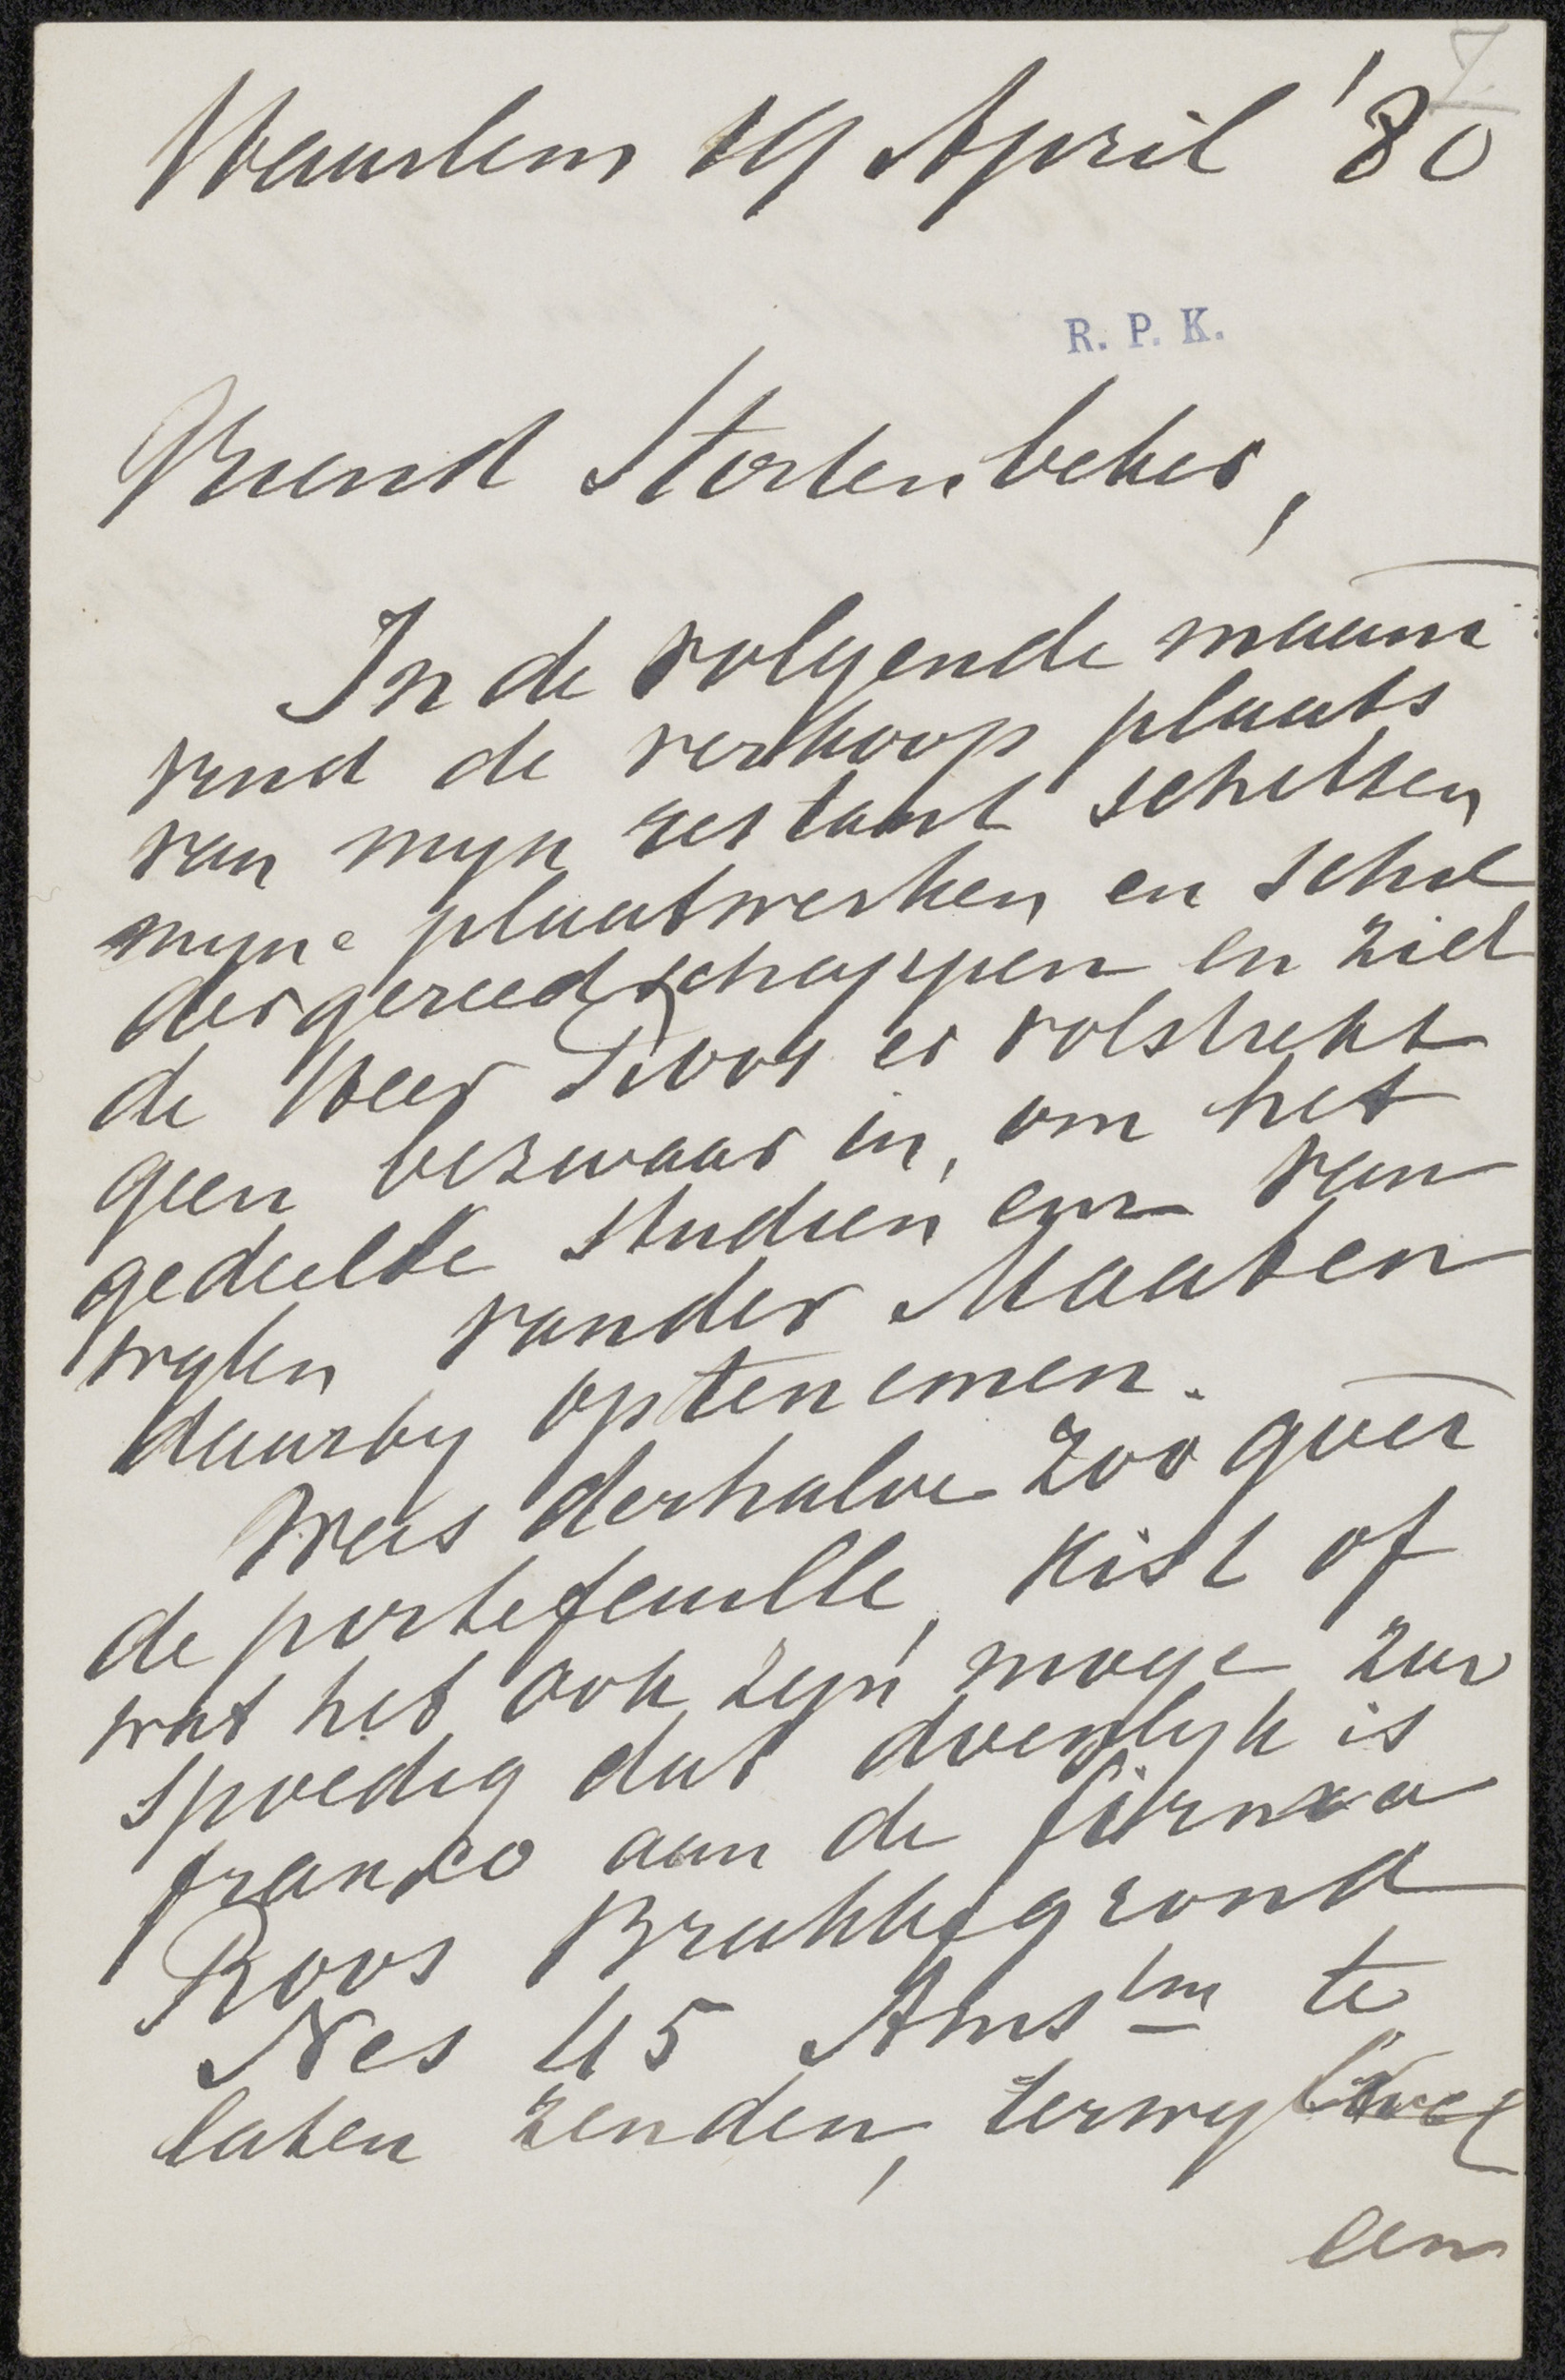 7.
Haarlem 19 April '80
R. P. K.
Vriend Stortenbeker,
In de volgende maand
vind de verkoop plaats
van mijn restant schetsen
mijne plaatwerken en schil
dergereedschappen en ziet
de Heer Roos er volstrekt
geen bezwaar in, om het
gedeelte studien enz van
wylen van der Maaten
daarby optenemen.
Wees derhalve zoo goed
de portefeuille, kist of
wat het ook zyn moge zoo
spoedig dat doenlyk is
franco aan de firma
Roos Brakkegrond
Nes 45 Amstm te
laten zenden, terwyl
een